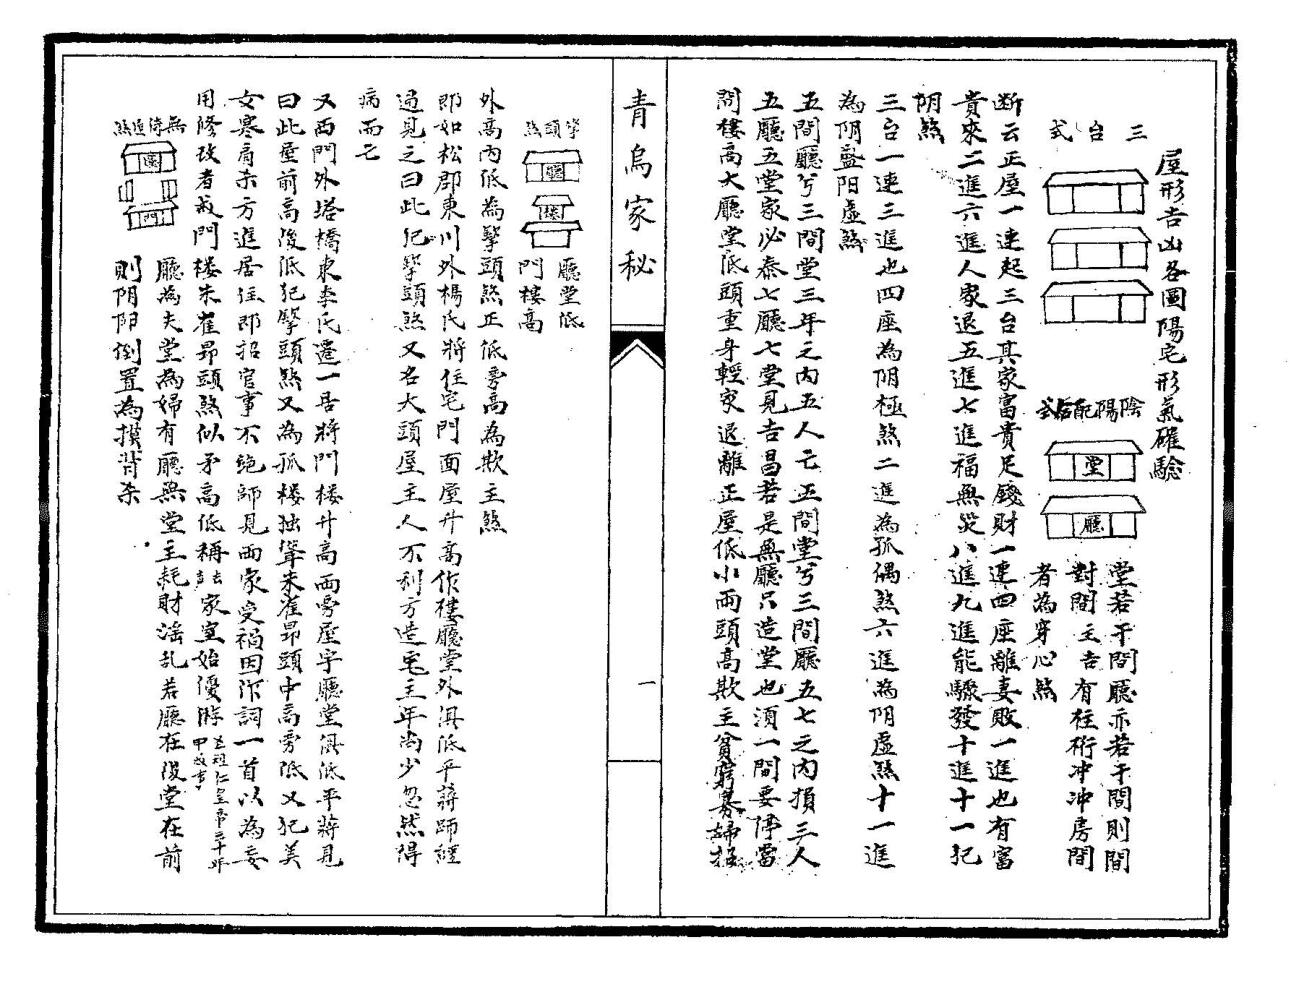 屋形吉凶各圖陽宅形氣確驗
三台式
陰陽配合式
堂
廳
堂若干間廳亦若干間則間
對間主吉有柱桁冲冲房間
者為穿心煞
断云正屋一連起三台其家富貴足錢財一連四座離妻敗一進也有富
貴來二進六進人家退五進七進福無災八進九進能驟發十進十一犯
阴煞
三台一連三進也四座為阴極煞二進為孤偶煞六進為阴虛煞十一進
為阴盛阳虛煞
五間廳兮三間堂三年之內五人亡五間堂兮三間廳五七之內損三人
五廳五堂家必泰七廳七堂見吉昌若是無廳只造堂也須一間要停當
間樓高大廳堂低頭重身輕家退離正屋低小兩頭高欺主貧窮寡婦招
青烏家秘
一
擎頭煞
廳
樓
廳堂低
門樓高
外高內低為擎頭煞正低旁高為欺主煞
即如松郡東川外楊氏將住宅門面屋升高作樓廳堂外俱低平蔣師經
過見之曰此犯擎頭煞又名大頭屋主人不利方造宅主年尚少忽然得
病而亡
又西門外塔橋東李氏遷一居將門樓升高而旁屋宇廳堂俱低平蔣見
曰此屋前高後低犯擎頭煞又為孤樓独聳朱雀昂頭中高旁低又犯美
女寒肩杀方進居住即招官事不绝師見两家受禍因作詞一首以為妄
用修改者戒門楼朱雀昂頭煞似矛高低稱去声家室始優游
廳
門
廳為夫堂為婦有廳無堂主耗財滛乱若廳在後堂在前
則阴阳倒置為撲背杀